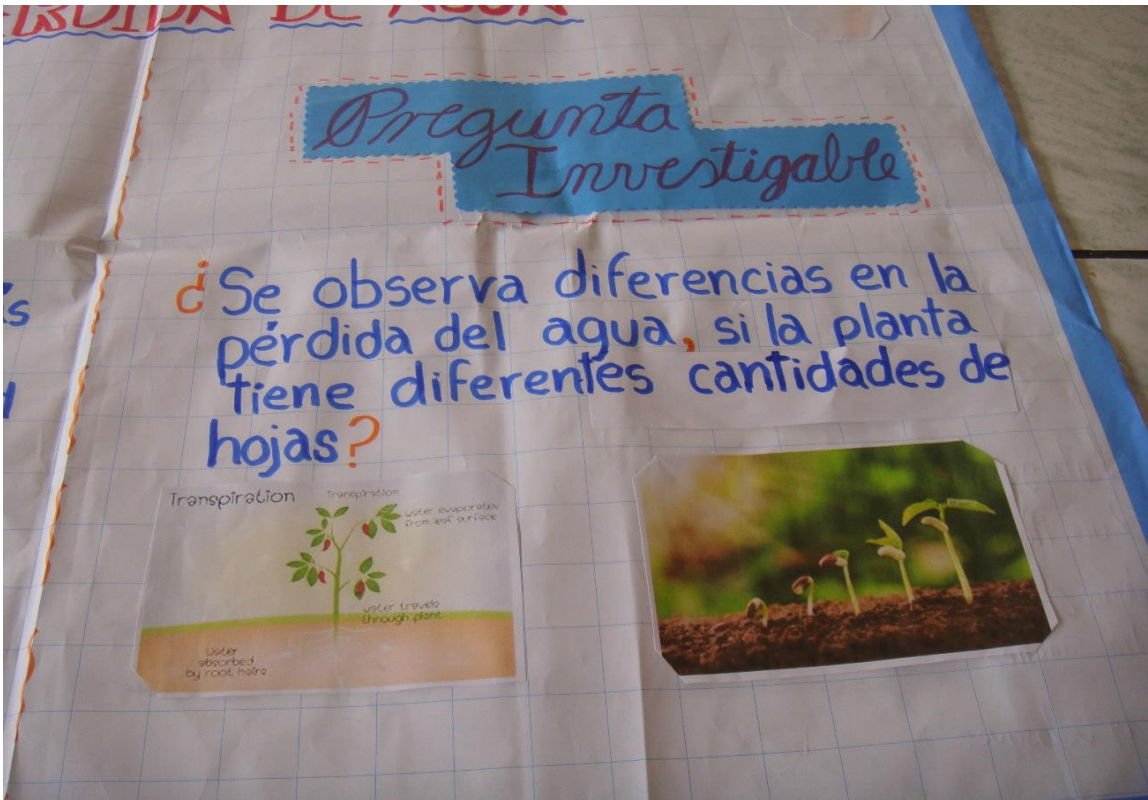 PÉRDIDA DE AGUA
Pregunta
Investigable
¿Se observa diferencias en la
pérdida del agua, si la planta
tiene diferentes cantidades de
hojas?
Transpiration
Transpiration
water evaporates
from leaf surface
water travels
through plant
Water
absorbed
by root hairs